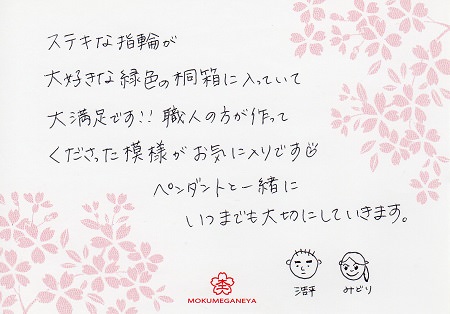 ステキな指輪が
大好きな緑色の桐箱に入っていて
大満足です!! 職人の方が作って
くださった模様がお気に入りです
ペンダントと一緒に
いつまでも大切にしていきます。
浩平 みどり
杢
MOKUMEGANEYA